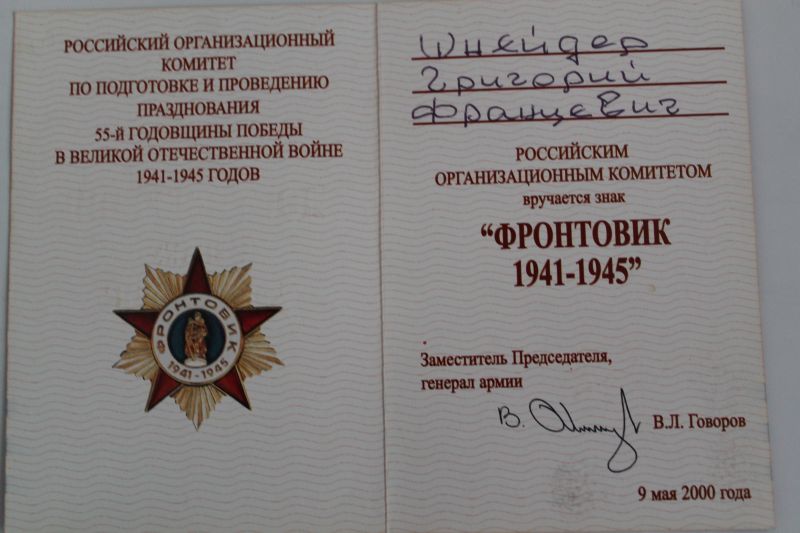 РОССИЙСКИЙ ОРГАНИЗАЦИОННЫЙ
КОМИТЕТ
ПО ПОДГОТОВКЕ И ПРОВЕДЕНИЮ
ПРАЗДНОВАНИЯ
55-й ГОДОВЩИНЫ ПОБЕДЫ
В ВЕЛИКОЙ ОТЕЧЕСТВЕННОЙ ВОЙНЕ
1941-1945 ГОДОВ
ФРОНТОВИК
1941-1945
Шнейдер
Григорий
Францевич
РОССИЙСКИМ
ОРГАНИЗАЦИОННЫМ КОМИТЕТОМ
вручается знак
“ФРОНТОВИК
1941-1945”
Заместитель Председателя,
генерал армии
В.Л. Говоров
9 мая 2000 года